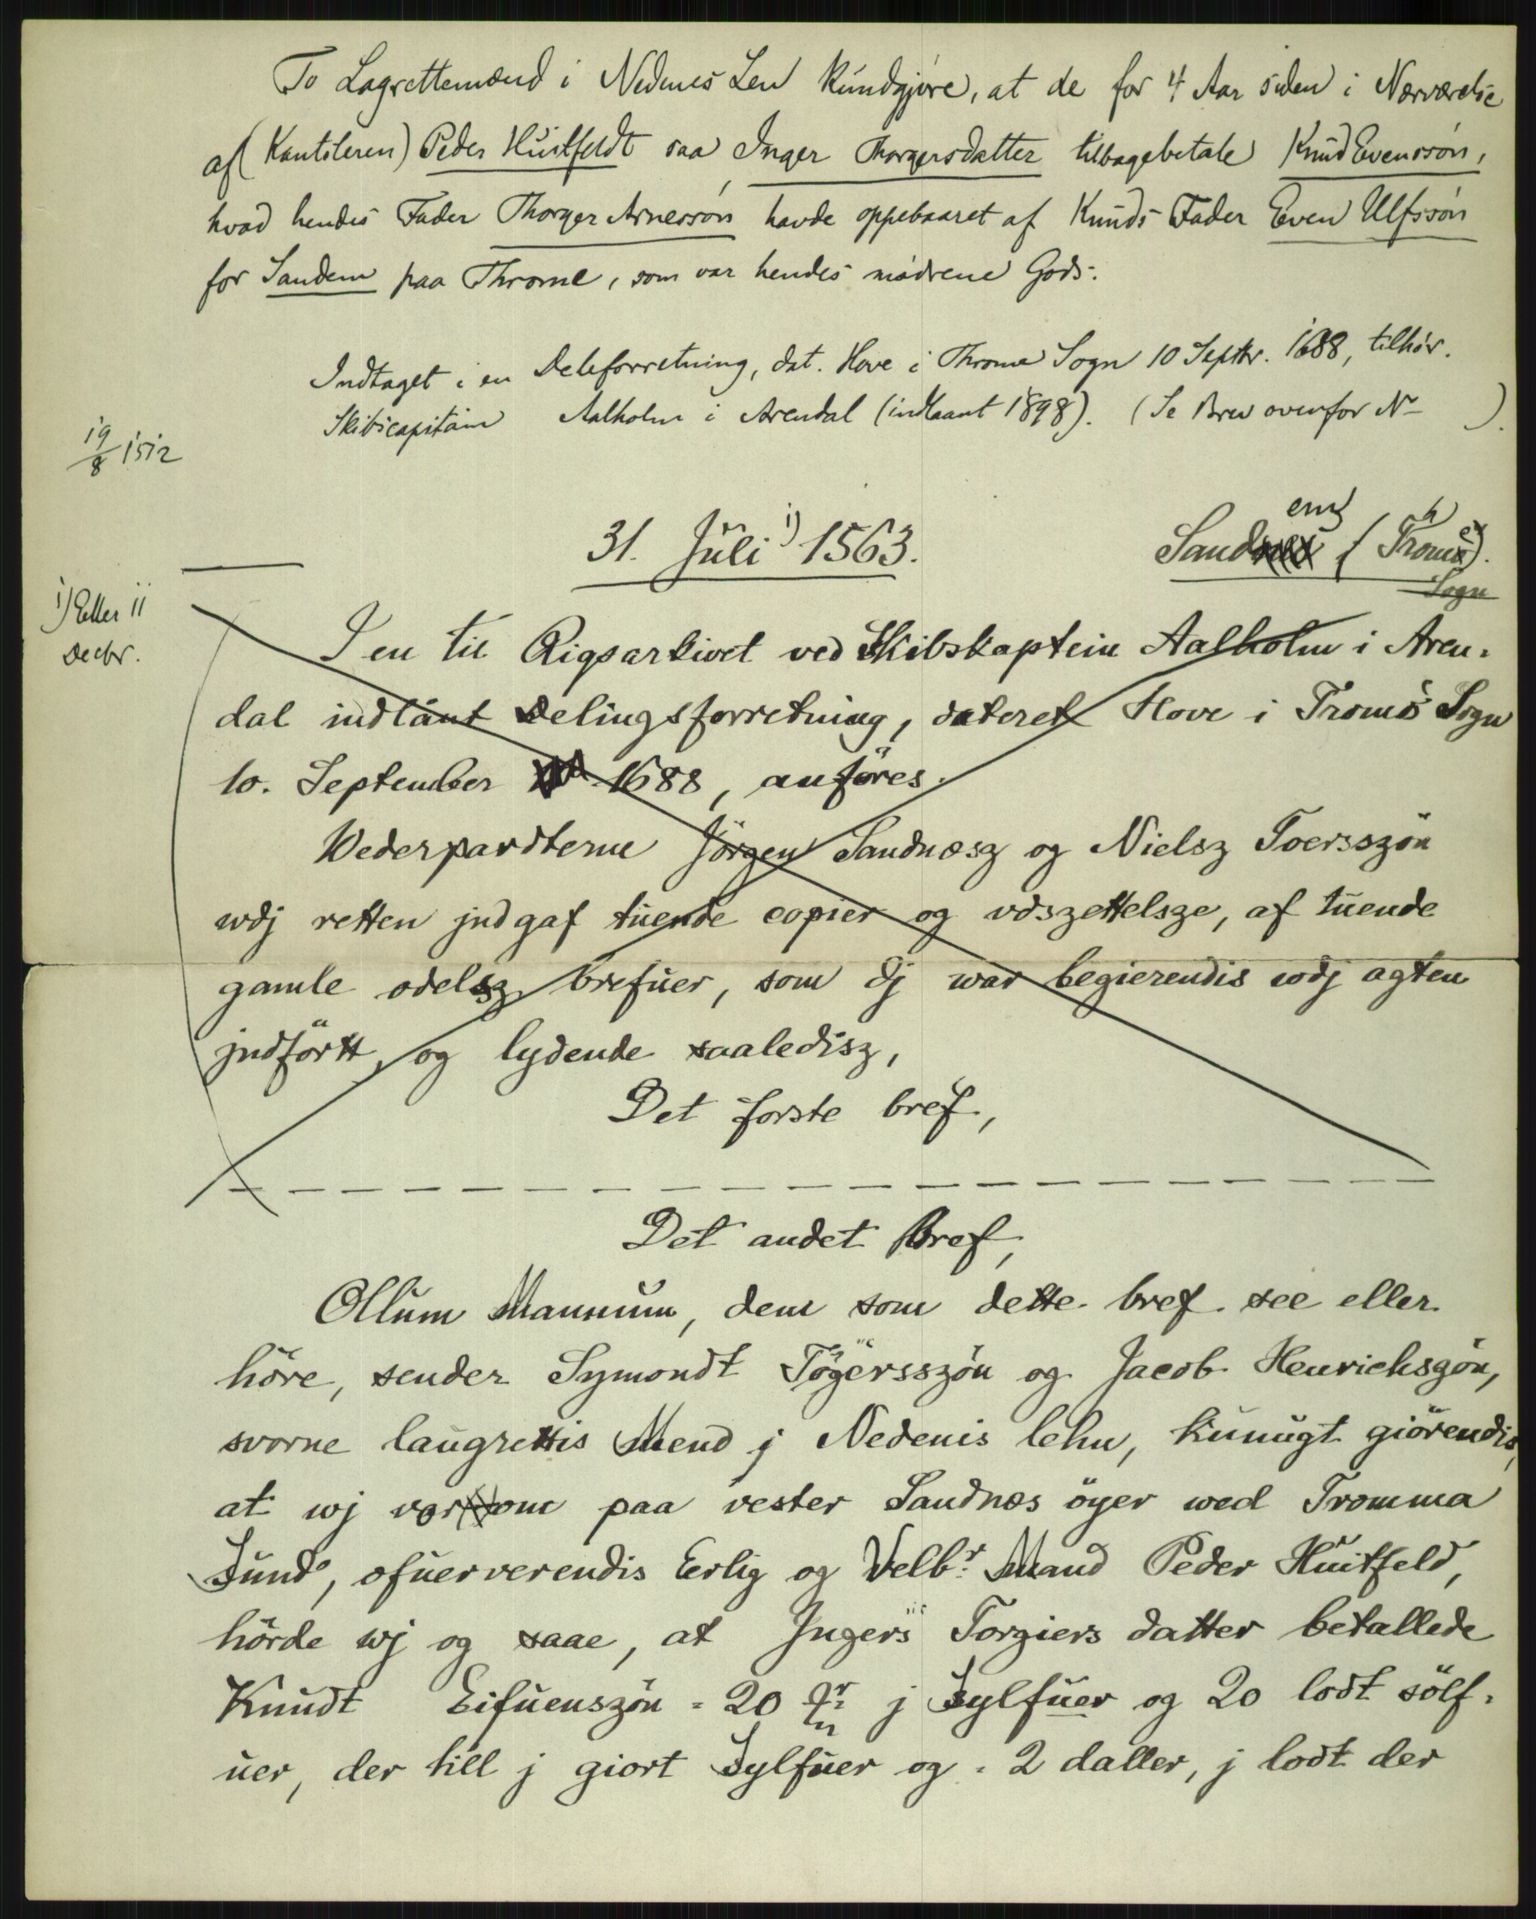 To Lagrettemænd i Nedenes Len kundgjøre, at de for 4 Aar siden i Nærværelse
af (Kantsleren) Peder Huitfeldt saa Inger Thorgersdatter tilbagebetale Knud Evenssøn,
hvad hendes Fader Thorger Arnessøn havde oppebaaret af Knuds Fader Even Ulfssøn
for Sandem paa Thromø, som var hendes mødrene Gods.
Indtaget i en Deleforretning, dat. Hove i Thromø Sogn 10 Septbr. 1688, tilhør.
Skibscapitain Aalholm i Arendal (indlaant 1898). (Se Brev ovenfor No ).
19/8 1512
31. Juli 1) 1563.
Sandem (Thromø).
Sogn
1) Eller 11
Decbr.
I en til Rigsarkivet ved Skibskaptein Aalholm i Aren-
dal indlånt Delingsforretning, dateret Hove i Tromö Sogn
10. September 1688, anföres.
Wederpardterne Jörgen Sandnæsz og Nielsz Toersszön
wdj retten jndgaf tuende copier og vdszettelsze, af tuende
gamle odelsz brefuer, som dj war begierendis wdj agten
jndförtt, og lydende saaledisz,
Det forste bref,
Det andet Bref,
Ollum Mannum, dem som dette bref see eller
höre, sender Symondt Tögersszön og Jacob Henrichszön,
svorne laugrettis Mend j Nedenis lehn, kunugt giörendis,
at wj vor som paa vester Sandnæs öyer wed Tromma
Sund, ofuerverendis Erlig og Velbr. Mand Peder Huitfeld,
hörde wj og saae, at Jngers Torgiers datter betallede
Knudt Eifuenszön = 20 j Sylfuer og 20 lodt sölf-
uer, der till j giort Sylfuer og = 2 daller, j lodt der